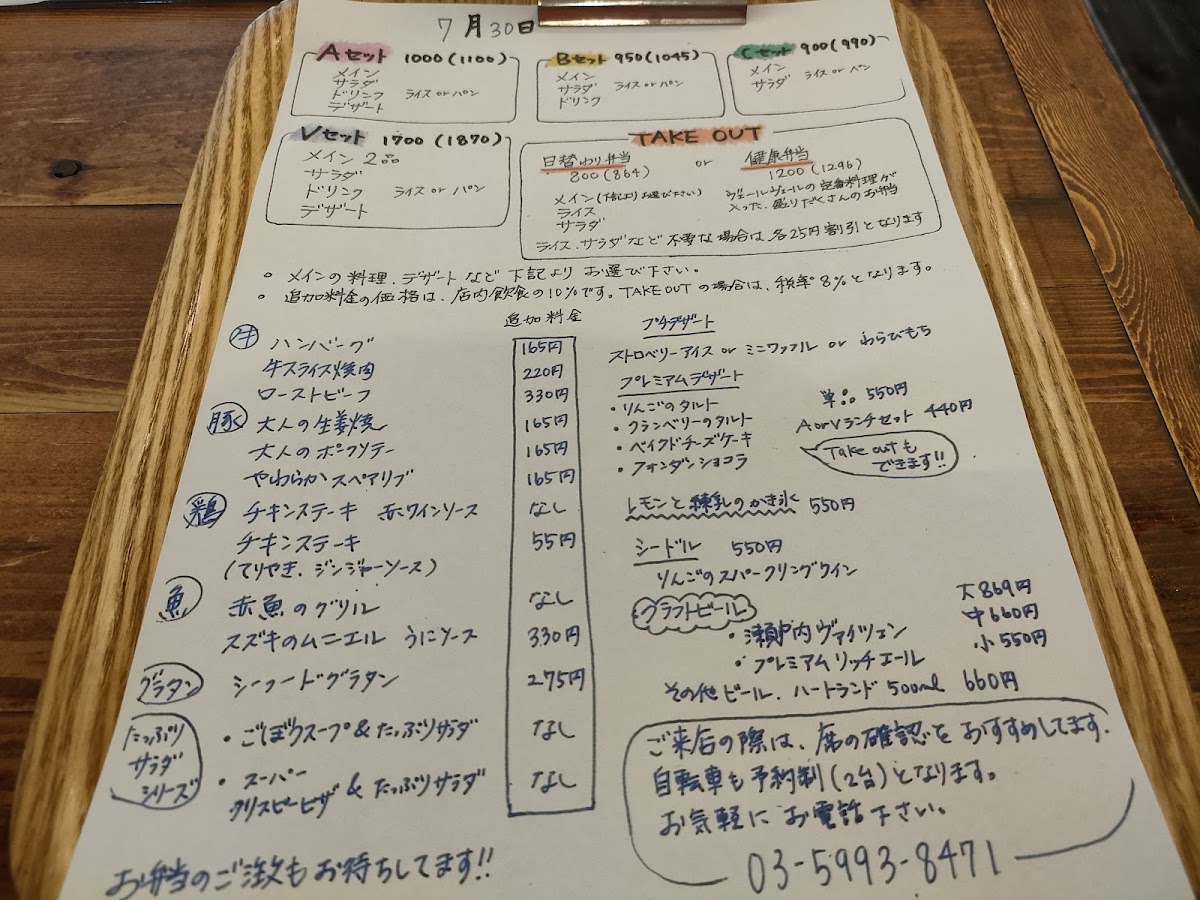 7月30日
Aセット 1000(1100)
メイン
サラダ
ドリンク ライス or パン
デザート
Bセット 950(1045)
メイン
サラダ ライス or パン
ドリンク
Cセット 900(990)
メイン ライス or パン
サラダ
Vセット 1700(1870)
メイン 2品
サラダ
ドリンク ライス or パン
デザート
TAKE OUT
日替わり弁当 or 健康弁当
800(864) 1200(1296)
メイン(下記よりお選び下さい)
ライス
サラダ
ヴェールヴェールの定番料理が
入った、盛りだくさんのお弁当
ライス、サラダなど不要な場合は各25円割引となります
○ メインの料理、デザートなど下記よりお選び下さい。
○ 追加料金の価格は、店内飲食の10%です。TAKEOUTの場合は、税率8%となります。
追加料金
牛 ハンバーグ 165円
牛スライス焼肉 220円
ローストビーフ 330円
豚 大人の生姜焼 165円
大人のポークソテー 165円
やわらかスペアリブ 165円
鶏 チキンステーキ 赤ワインソース なし
チキンステーキ 55円
(てりやき、ジンジャーソース)
魚 赤魚のグリル なし
スズキのムニエル うにソース 330円
グラタン シーフードグラタン 275円
たっぷり
サラダ
シリーズ
・ごぼうスープ&たっぷりサラダ なし
・スーパー
クリスピーピザ & たっぷりサラダ なし
お弁当のご注文もお待ちしてます!!
プチデザート
ストロベリーアイス or ミニワッフル or わらびもち
プレミアムデザート
・りんごのタルト
・クランベリーのタルト
・ベイクドチーズケーキ
・フォンダンショコラ
単品 550円
AorVランチセット 440円
Take outも
できます!!
レモンと練乳のかき氷 550円
シードル 550円
りんごのスパークリングワイン
クラフトビール
・瀬戸内ヴァイツェン
・プレミアムリッチエール
大 869円
中 660円
小 550円
その他ビール、ハートランド 500ml 660円
ご来店の際は、席の確認をおすすめしてます。
自転車も予約制(2台)となります。
お気軽にお電話下さい。
03-5993-8471